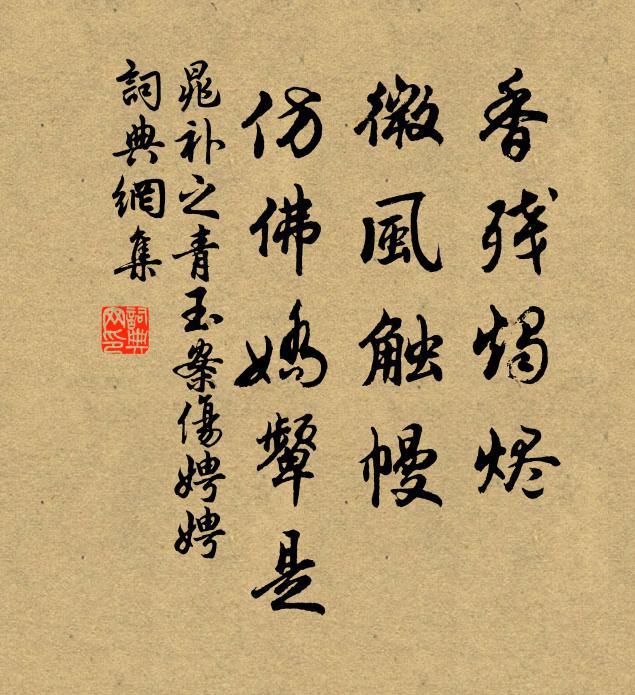 香残烛烬
微風触幔
仿佛嬌顰是
晁补之青玉案傷娉娉
詞典網集
詞典网印